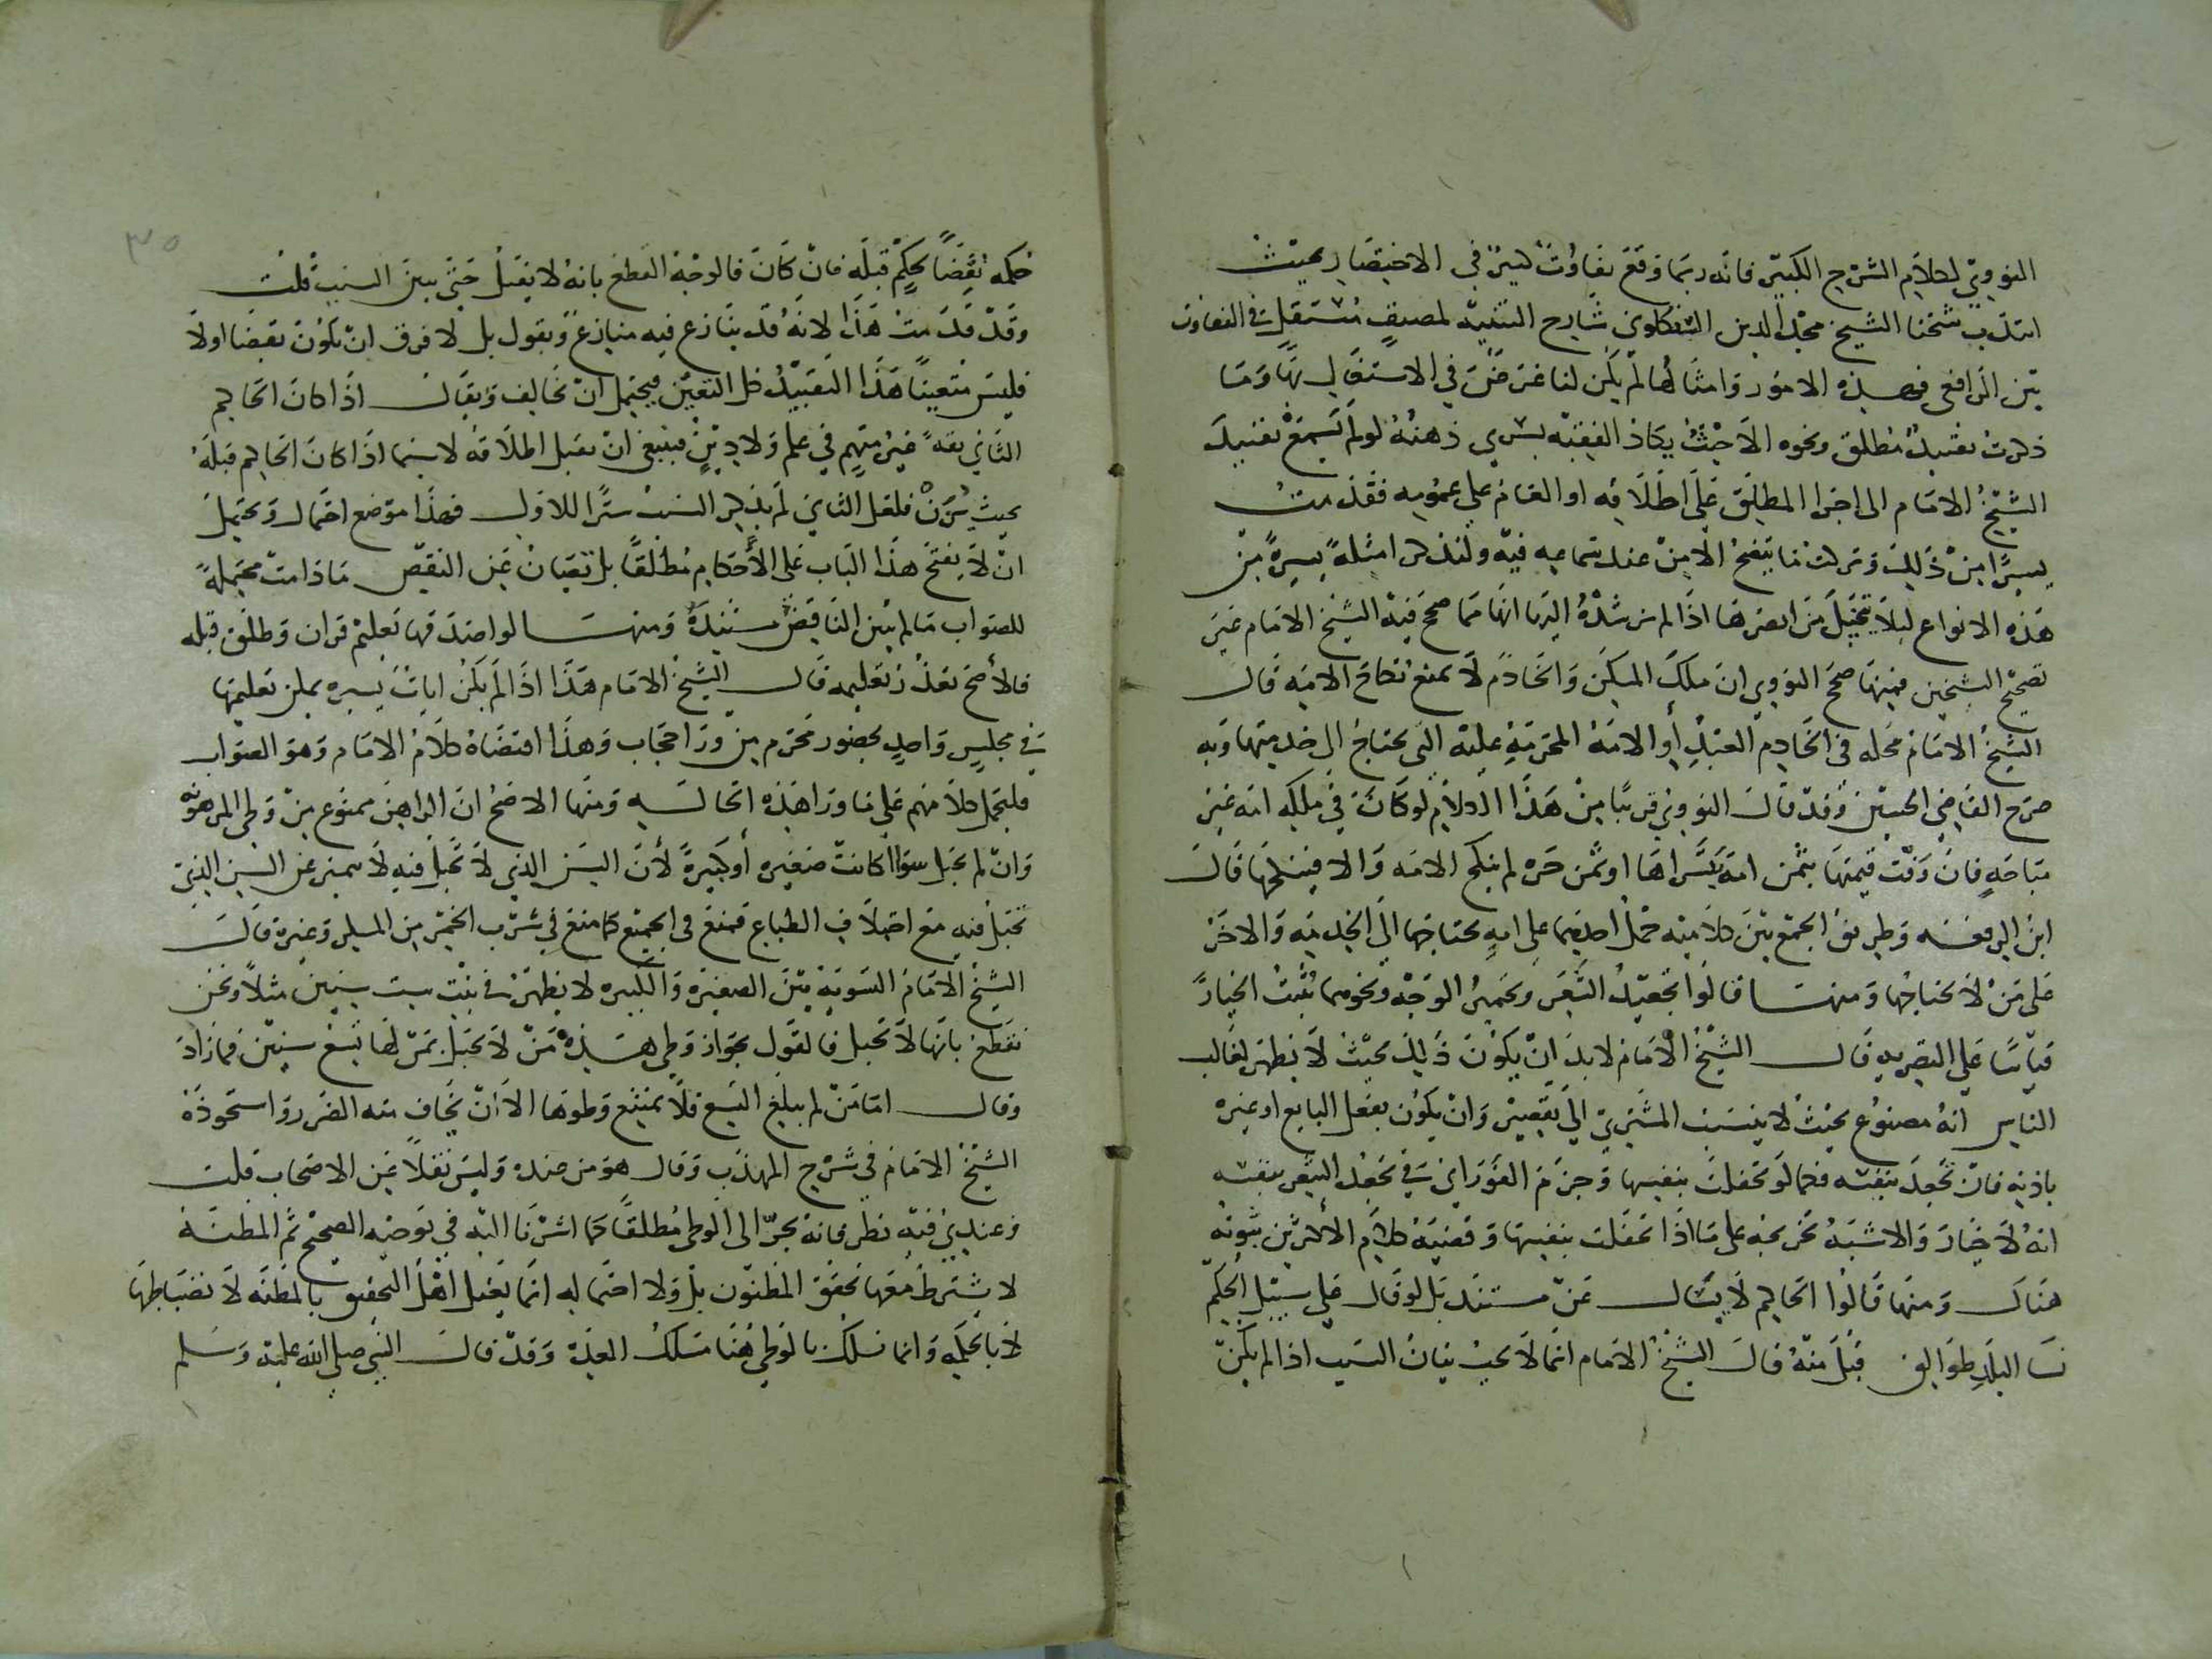 النووي لكلام الشرح الكبير فانه ربما وقع تفاوت كبير في الاختصار بحيث
انتدب شيخنا الشيخ مجد الدين الزنكلوني شارح التنبيه لمصنف مستقل في التفاوت
بين الرافعي فهذه الامور وامثالها لم يكن لنا غرض في الاستقلال بها وما
ذكرت تقييد مطلق ونحوه الا حيث يكاد الفقيه يسري ذهنه لو لم يسمع تقييد
الشيخ الامام الى اجرا المطلق على اطلاقه او العام على عمومه فقدمت
يسيرا من ذلك وتركت ما يتضح الامر عند سماعه فيه ولنذكر امثلة يسيرة من
هذه الانواع ليلا يتخيل من ابصرها اذا لم نرشده اليها انها مما صحح فيه الشيخ الامام غير
تصحيح الشيخين فمنها صحح النووي ان ملك المسكن والخادم لا يمنع نكاح الامة قال
الشيخ الامام محله في الخادم العبد أو الامة المحرمة عليه التي يحتاج الى خدمتها وبه
صرح القاضي الحسين وقد قال النووي قريبا من هذا الكلام لو كانت في ملكه امة غير
مباحة فان وفت قيمتها بثمن امة يتسراها او ثمن حرة لم ينكح الامة والا فينكحها قال
ابن الرفعة وطريق الجمع بين كلاميه حمل احدهما على امة يحتاجها الى الخدمة والاخر
على من لا يحتاجها ومنها قالوا تجعيد الشعر وتحمير الوجه ونحوهما يثبت الخيار
قياسا على التصرية قال الشيخ الامام لا بد ان يكون ذلك بحيث لا يظهر لغالب
الناس انه مصنوع بحيث لا ينسب المشتري الى تقصير وان يكون بفعل البايع او غيره
باذنه فان تجعد بنفسه فكما لو تحفلت بنفسها وجزم الفوراني في تجعد الشعر بنفسه
انه لا خيار والاشبه تخريجه على ما اذا تحفلت بنفسها وقضية كلام الاكثرين ثبوته
هناك ومنها قالوا الحاكم لا يسال عن مستند بل لو قال على سبيل الحكم
نسا البلد طوالق قبل منه قال الشيخ الامام انما لا يجب بيان السبب اذا لم يكن
حكمه نقضا لحكم قبله فان كان فالوجه القطع بانه لا يقبل حتى يبين السبب قلت
وقد قدمت هذا لانه قد ينازع فيه منازع ويقول بل لا فرق ان يكون نقضا اولا
فليس متعينا هذا التقييد كل التعين فيحتمل ان يخالف ويقال اذا كان الحاكم
الثاني ثقة غير متهم في علم ولا دين فينبغي ان يقبل اطلاقه لا سيما اذا كان الحاكم قبله
بحيث فلعل الثاني لم يذكر السبب سترا للاول فهذا موضع احتمال ويحتمل
ان لا يفتح هذا الباب على الأحكام مطلقا بل تصان عن النقض ما دامت محتملة
للصواب ما لم يبن الناقض مستنده ومنها لو اصدقها تعليم قران وطلق قبله
فالأصح تعذر تعليمه قال الشيخ الامام هذا اذا لم يكن ايات يسيره يمكن تعليمها
في مجلس واحد بحضور محرم من ورا حجاب وهذا اقتضاه كلام الامام وهو الصواب
فليحمل كلامهم على ما ورا هذه الحالة ومنها الاصح ان الراهن ممنوع من وطي المرهونة
وان لم تحبل سوا كانت صغيره أو كبيرة لأن السن الذي لا تحبل فيه لا يتميز عن السن الذي
تحبل فيه مع اختلاف الطباع فمنع في الجميع كما منع في شرب الخمر من المسكر وغيره قال
الشيخ الامام التسوية بين الصغيرة والكبيره لا يظهر في بنت ست سنين مثلا ونحن
نقطع بانها لا تحبل فالقول بجواز وطي هذه من لا تحبل بمن لها تسع سنين فما زاد
وقال اما من لم يبلغ التسع فلا يمتنع وطوها الا ان يخاف منه الضرر واستحوذه
الشيخ الامام في شرح المهذب وقال هو من عنده وليس نقلا عن الاصحاب قلت
وعندي فيه نظر فانه يجر الى الوطى مطلقا كما اشرنا اليه في توجيه الصحيح ثم المظنة
لا يشترط معها تحقق المظنون بل ولا احتماله انما يعتل اهل التحقيق بالمظنة لانضباطها
لا بالحكمه وانما نسلك بالوطي هنا مسلك العدة وقد قال النبي صلى الله عليه وسلم